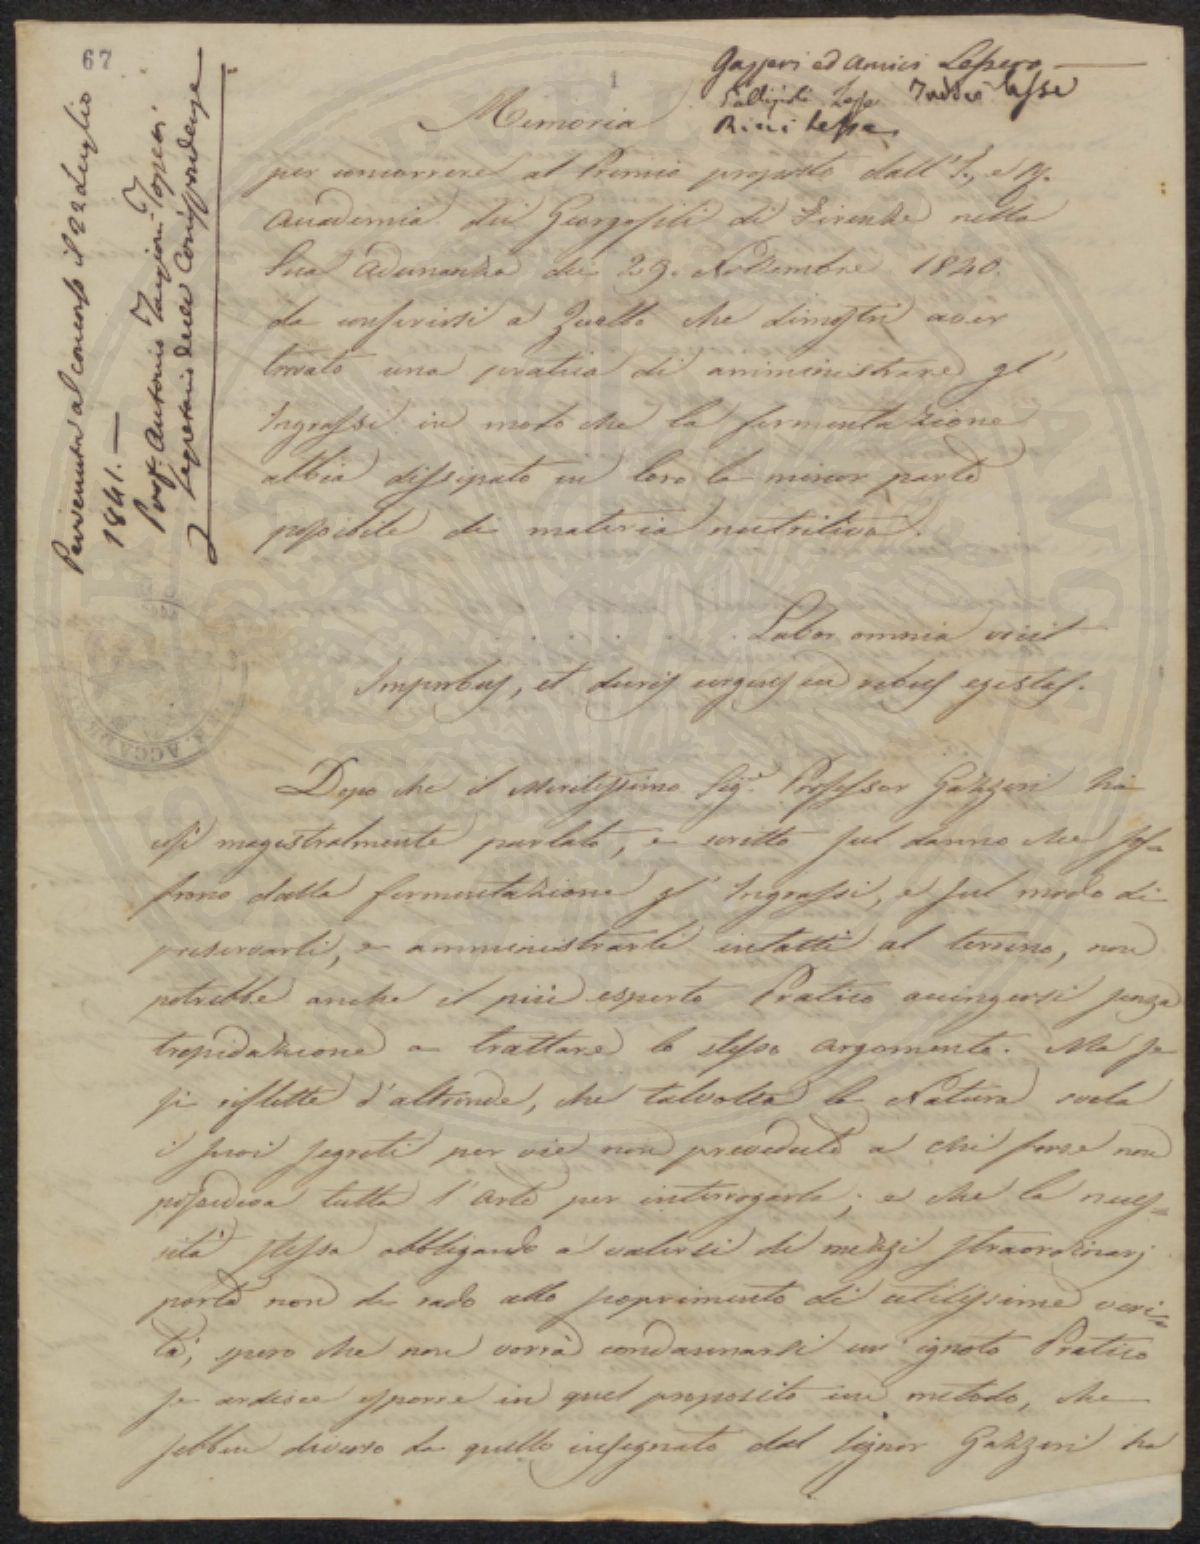 67
1
Gazzeri ed Amici Lessero
Lesse Taddei lesse
Ricci Lesse
Pervenuta al concorso il 22 Luglio
1841. —
Prof. Antonio Targioni Tozzetti
Segretario delle Corrispondenze
Memoria
per concorrere al Premio proposto dall' I., e R.
Accademia dei Georgofili di Firenze nella
Sua adunanza de' 29. Novembre 1840.
da conferirsi a Quello che dimostri aver
trovato una pratica di amministrare gl'
Ingrassi in modo che la fermentazione
abbia dissipato in loro la minor parte
possibile di materia nutritiva.
. . . . . . Labor omnia vicit
Improbus, et duris urgens in rebus egestas.
Dopo che il Meritissimo Sig.e Professor Gazzeri ha
così magistralmente parlato, e scritto sul danno che sof=
frono dalla fermentazione gl' Ingrassi, e sul modo di
preservarli, e amministrarli intatti al terreno, non
potrebbe anche il più esperto Pratico accingersi senza
trepidazione a trattare lo stesso argomento. Ma se
si riflette d'altronde, che talvolta la Natura svela
i suoi segreti per vie non prevedute a chi forse non
possedeva tutta l'arte per interrogarla; e che la neces=
sità stessa obbligando a valersi di mezzi straordinarj
porta non di rado allo scoprimento di utilissime veri=
tà, spero che non vorrà condannarsi un ignoto Pratico
se ardisce esporre in quel proposito un metodo, che
sebben diverso da quello insegnato dal Signor Gazzeri ha
ACCAD